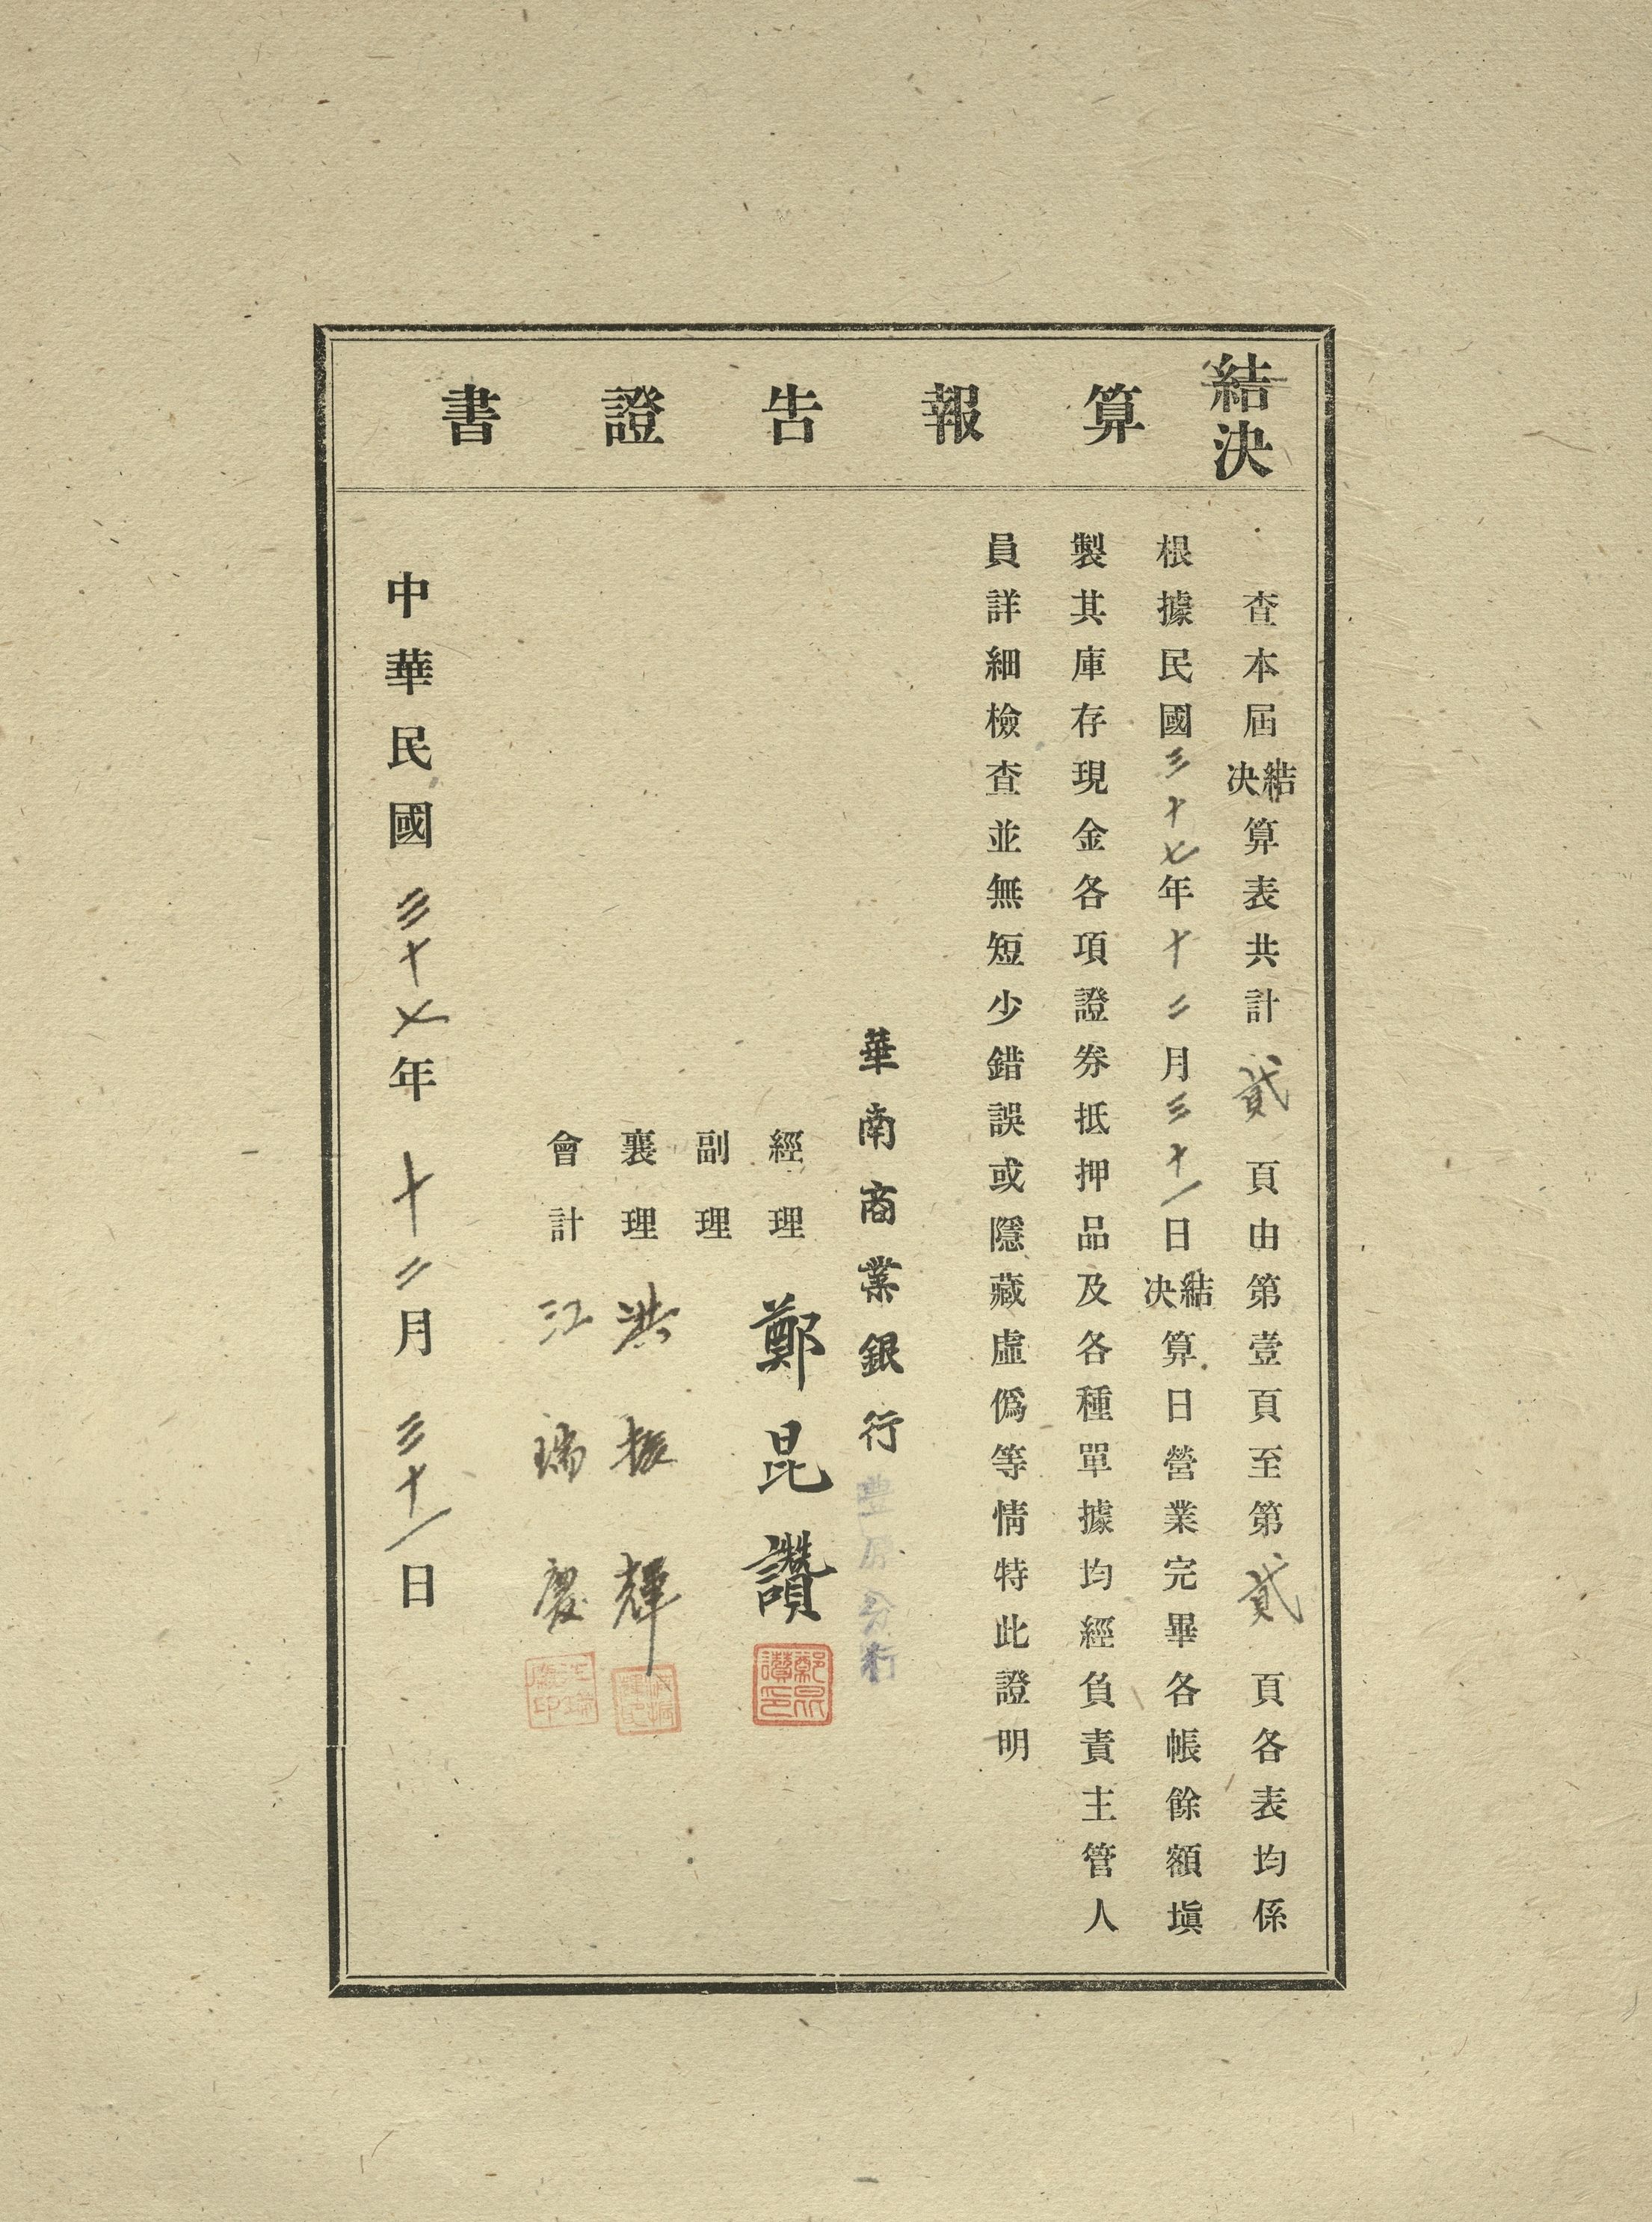 結決算報告證書
查本屆結決算表共計貳頁由第壹頁至第貳頁各表均係
根據民國三十七年十二月三十一日結決算日營業完畢各帳餘額塡
製其庫存現金各項證券抵押品及各種單據均經負責主管人
員詳細檢查並無短少錯誤或隱藏虛僞等情特此證明
華南商業銀行豐原分行
經理 鄭昆讚
副理
襄理 洪振輝
會計 江瑞慶
中華民國三十七年十二月三十一日